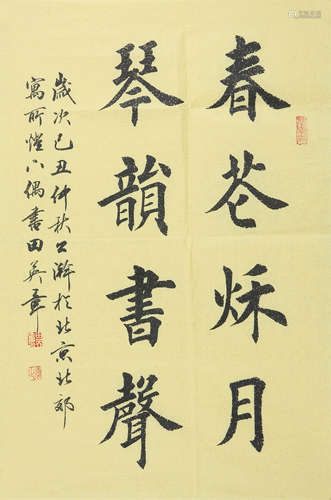 春花秋月
琴韻書聲
歲次己丑仲秋之澣於北京北郊
寓所燈下偶書田英章